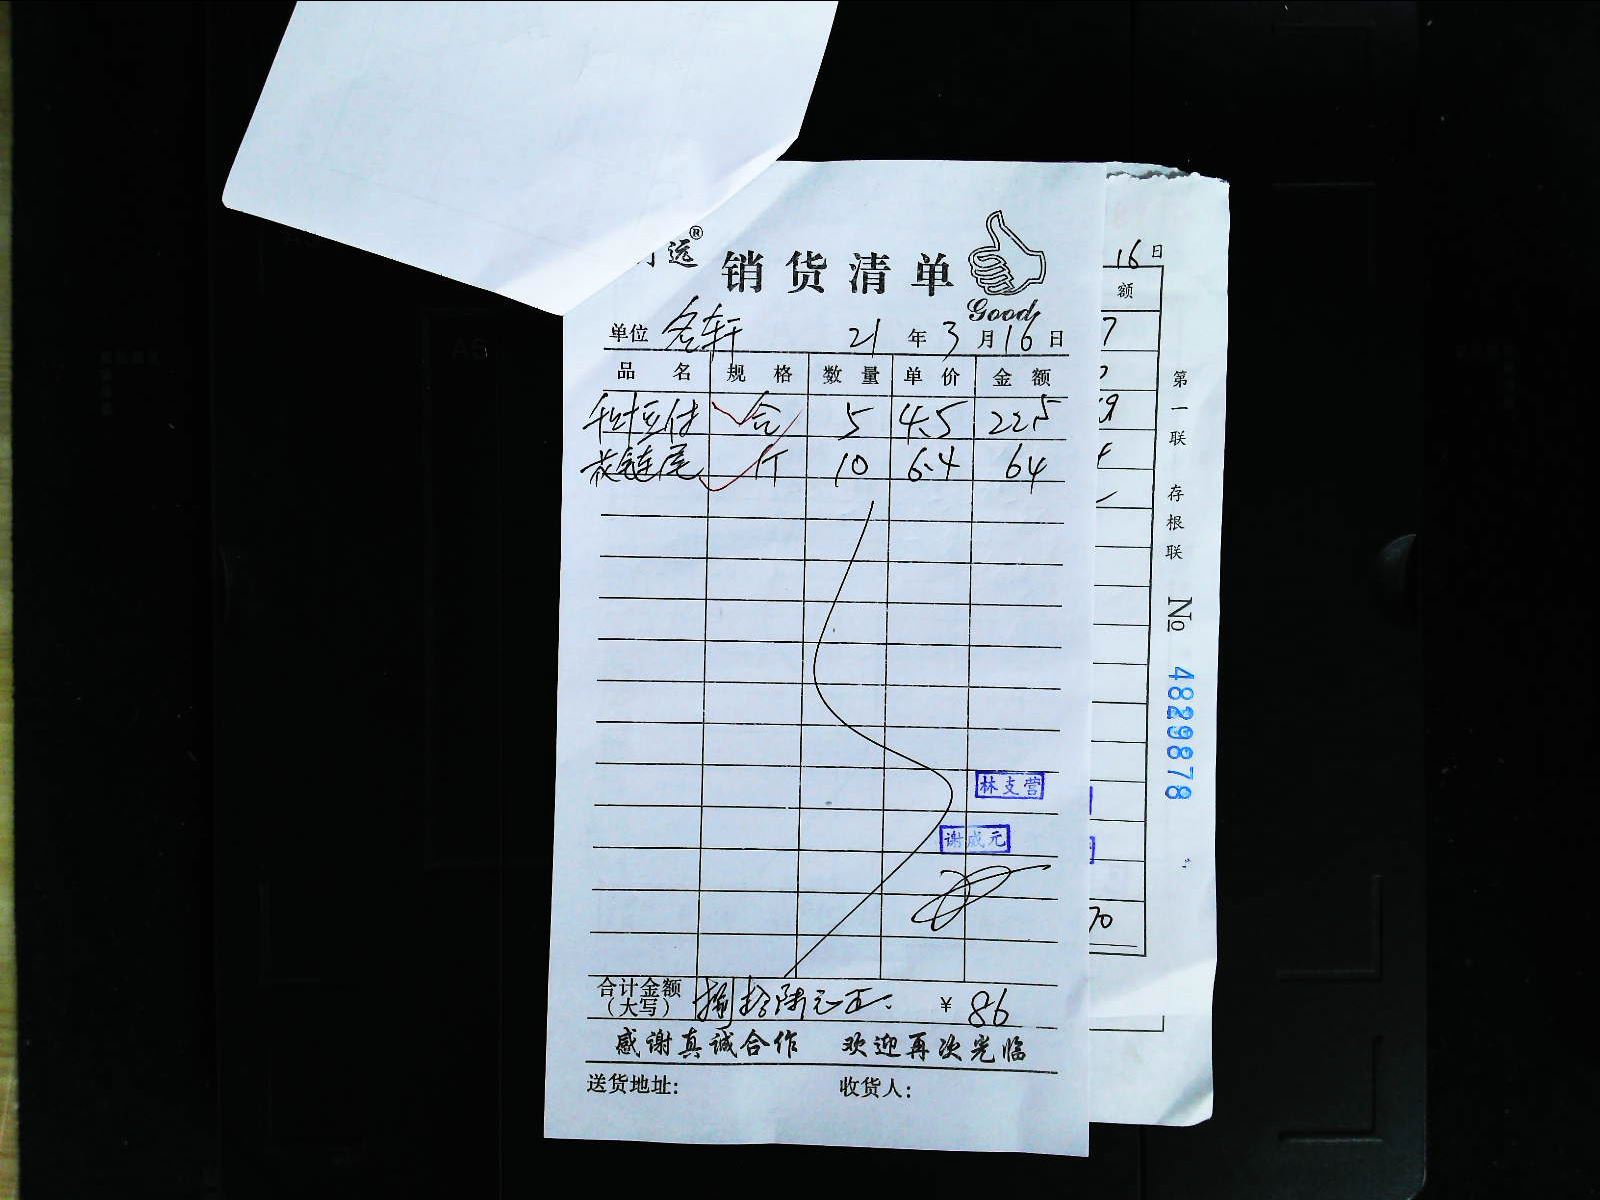 远®
销货清单
Good
单位 名轩 21年3月16日
品名 规格 数量 单价 金额
盒 5 4.5 22.5
花鲢尾 斤 10 6.4 64
林支营
谢成元
合计金额(大写) 捌拾陆元正. ¥ 86
感谢真诚合作 欢迎再次光临
送货地址: 收货人:
16日
额
7
9
70
第一联 存根联 No 4829878